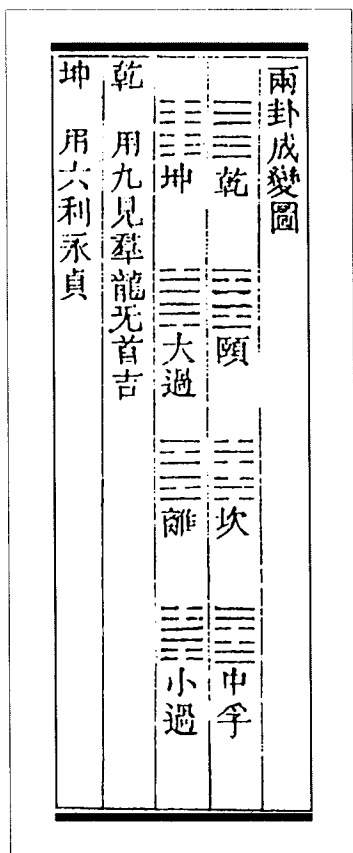 兩卦成變圖
乾 頤 坎 中孚
坤 大過 離 小過
乾 用九見羣龍无首吉
坤 用六利永貞